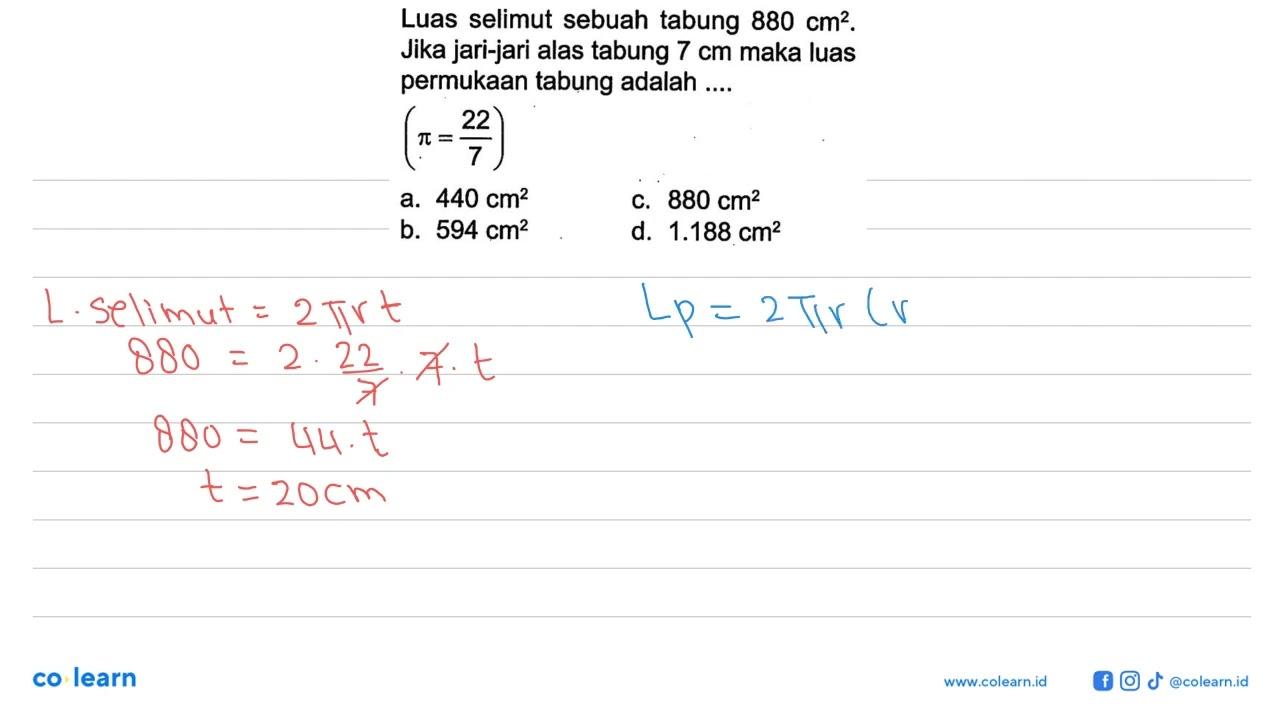 Luas selimut sebuah tabung 880 cm².
Jika jari-jari alas tabung 7 cm maka luas
permukaan tabung adalah ....
(π = 22/7)
a. 440 cm² c. 880 cm²
b. 594 cm² d. 1.188 cm²
L. selimut = 2πrt
880 = 2 . 22/7 . 7 . t
880 = 44 . t
t = 20 cm
Lp = 2πr (r
co learn
www.colearn.id @colearn.id